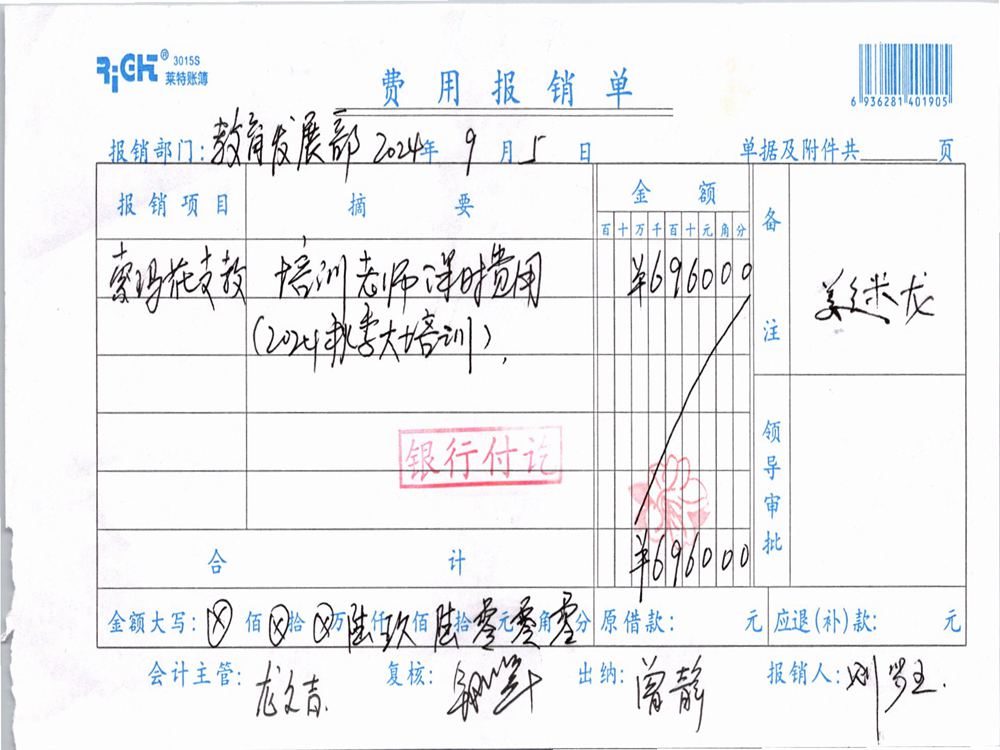 RiGHT® 3015S
莱特账簿
费用报销单
6 936281 401905
报销部门：教育发展部 2024年 9月5日 单据及附件共 页
报销项目 摘要 金额 备注
百十万千百十元角分
索玛花支教 培训老师课时费用 ¥696000
(2024秋季大培训)
银行付讫
领导审批
合计 ¥696000
金额大写：ⓧ佰ⓧ拾ⓧ万陆仟玖佰陆拾零元零角零分 原借款： 元 应退(补)款： 元
会计主管：龙文吉 复核： 出纳：曾静 报销人：